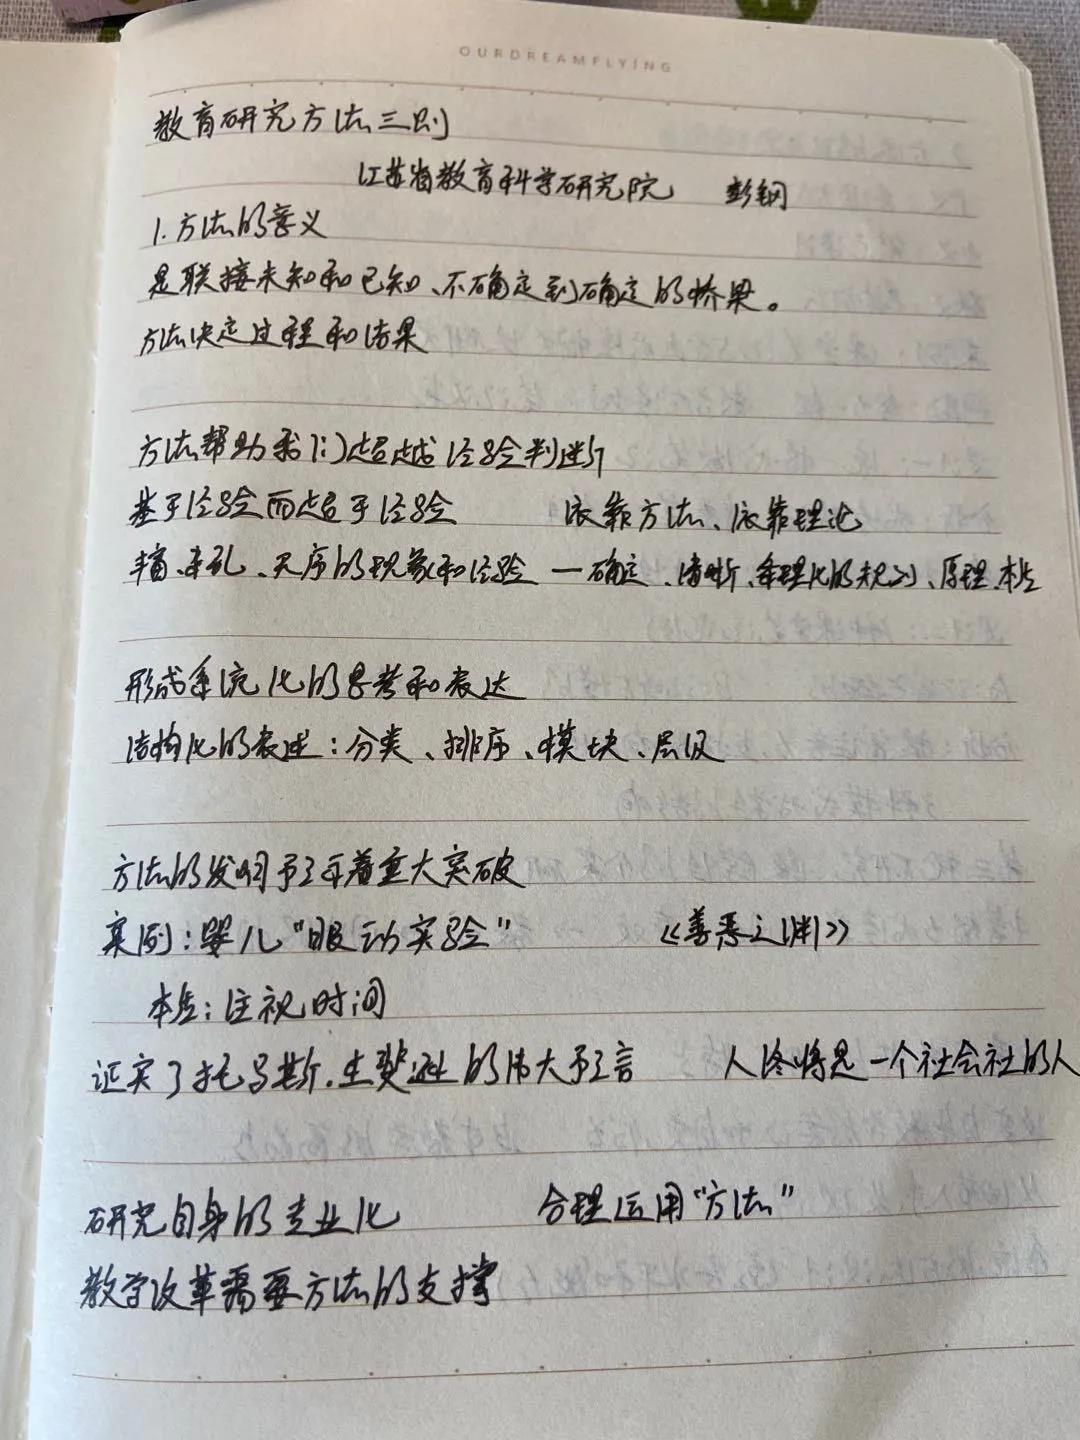 OURDREAMFLYING
教育研究方法三则
江苏省教育科学研究院 彭钢
1.方法的意义
是联接未知和已知、不确定到确定的桥梁。
方法决定过程和结果
方法帮助我们超越经验判断
基于经验而超于经验 依靠方法、依靠理论
丰富、杂乱、无序的现象和经验 — 确定、清晰、条理化的规则、原理、本质
形成系统化的思考和表达
结构化的表述：分类、排序、模块、层级
方法的发明予示着重大突破
案例：婴儿“眼动实验” 《善恶之源》
本质：注视时间
证实了托马斯.杰斐逊的伟大予言 人终将是一个社会社的人
研究自身的专业化 合理运用“方法”
教学改革需要方法的支撑